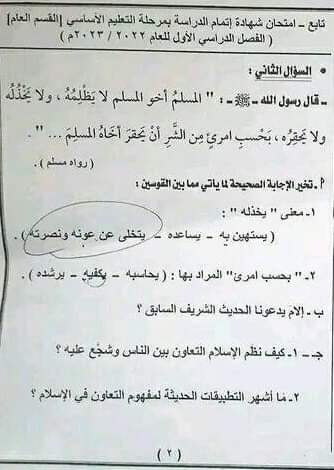 تابع - امتحان شهادة إتمام الدراسة بمرحلة التعليم الأساسي [القسم العام]
( الفصل الدراسي الأول للعام ٢٠٢٢ / ٢٠٢٣م )
• السؤال الثاني :
قال رسول الله -ﷺ- : " المسلمُ أخو المسلم لا يَظْلِمُهُ ، ولا يَخْذُلُهُ
ولا يَحقِره ، بَحَسبِ امرئٍ مِن الشَّرِ أنْ يَحقرَ أخَاهُ المسلِمَ ... " .
( رواه مسلم ) .
أ- تخير الإجابة الصحيحة لما يأتي مما بين القوسين :
١- معنى " يخذله " :
( يستهين به - يساعده - يتخلى عن عونه ونصرته ) .
٢- " بحسب امرئ" المراد بها : ( يحاسبه - يكفيه - يرشده ) .
ب - إلام يدعونا الحديث الشريف السابق ؟
جـ - ١- كيف نظم الإسلام التعاون بين الناس وشجَّع عليه ؟
٢- مَا أشهر التطبيقات الحديثة لمفهوم التعاون في الإسلام ؟
( ٢ )